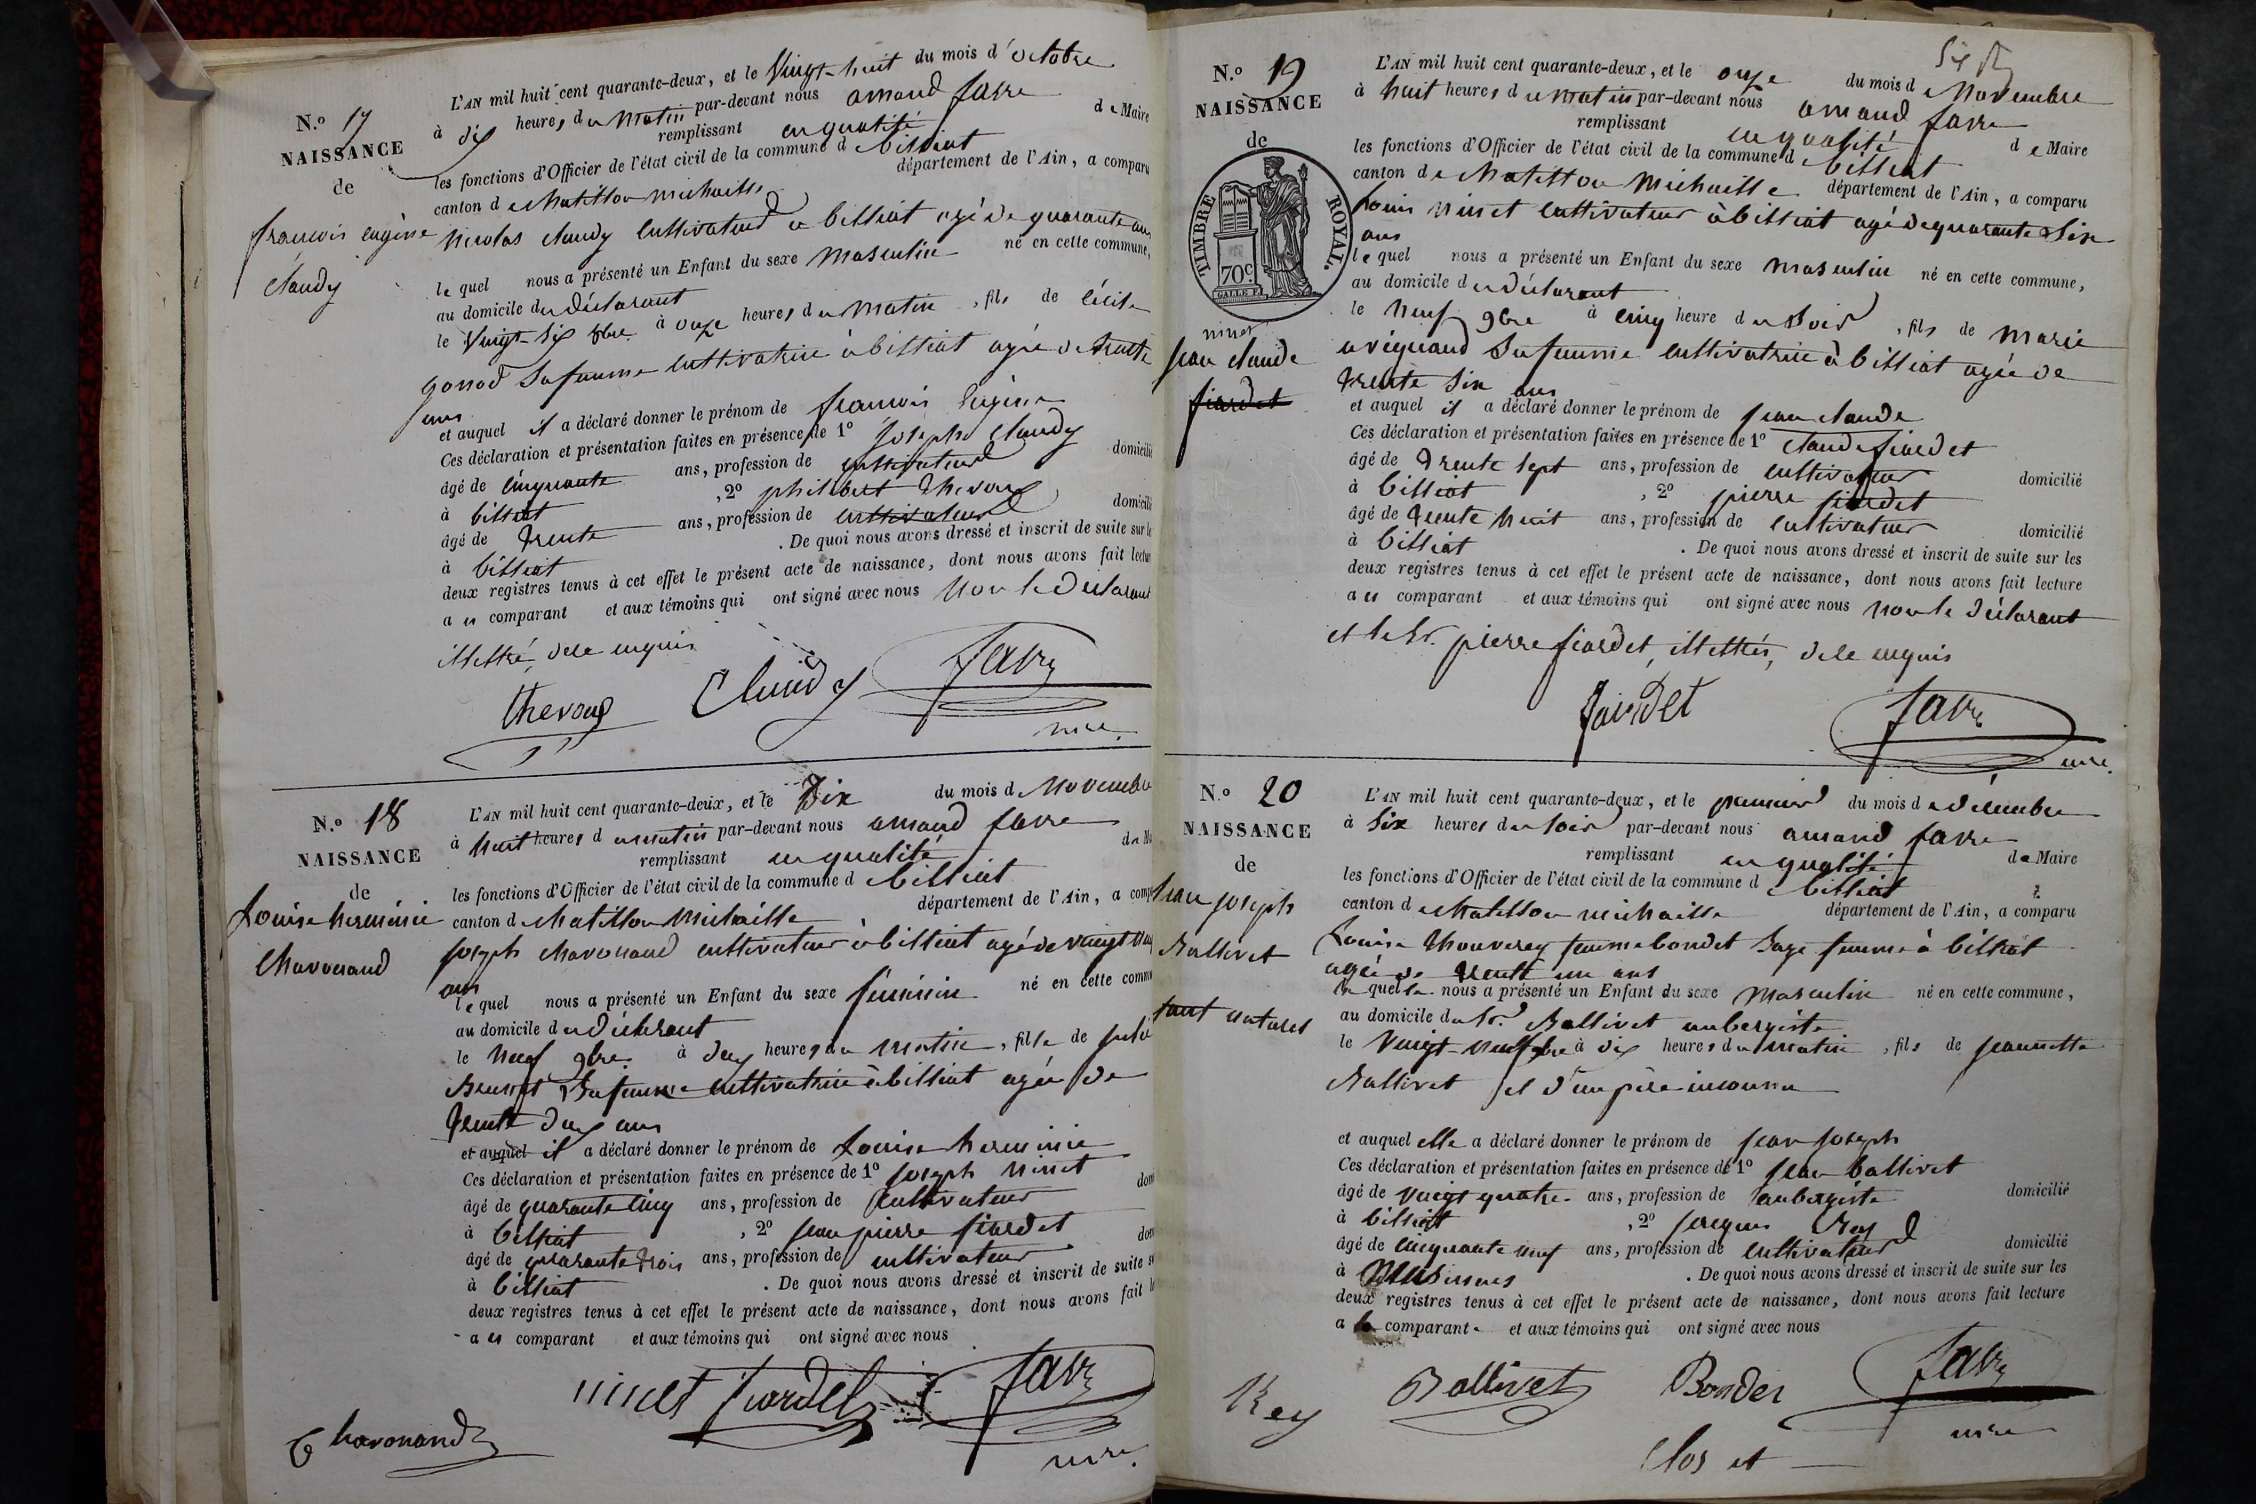 N.o 17
NAISSANCE
de
francois eugène
Claudy
L'AN mil huit cent quarante-deux, et le Vingt-huit du mois d'octobre
à dix heures du matin par-devant nous amand favre
remplissant en qualité de Maire
les fonctions d'Officier de l'état civil de la commune de billiat
canton de Chatillon michaille département de l'Ain, a comparu
nicolas claudy cultivateur à billiat agé de quarante ans
lequel nous a présenté un Enfant du sexe masculin né en cette commune,
au domicile du déclarant
le Vingt-six 8bre à onze heures du matin, fils de Cécile
gonod sa femme cultivatrice à billiat agée de trente
ans
et auquel il a déclaré donner le prénom de francois Eugène
Ces déclaration et présentation faites en présence de 1o Joseph Claudy
âgé de cinquante ans, profession de cultivateur domicilié
à billiat, 2o philibert thevoux
âgé de trente ans, profession de cultivateur domicilié
à billiat. De quoi nous avons dressé et inscrit de suite sur le
deux registres tenus à cet effet le présent acte de naissance, dont nous avons fait lecture
au comparant et aux témoins qui ont signé avec nous non le déclarant
illettré, de ce enquis
Claudy favre
mre.
N.o 18
NAISSANCE
de
Louise herminie
Chavonand
L'AN mil huit cent quarante-deux, et le Dix du mois de Novembre
à huit heures du matin par-devant nous amand favre
remplissant en qualité de Ma
les fonctions d'Officier de l'état civil de la commune de billiat
canton de Chatillon Michaille département de l'Ain, a comp
joseph chavonand cultivateur à billiat agé de vingt
ans
lequel nous a présenté un Enfant du sexe féminin né en cette comm
au domicile du déclarant
le neuf 9bre à deux heures du matin, fille de
Brunet sa femme cultivatrice à billiat agée de
trente deux ans
et auquel il a déclaré donner le prénom de Louise herminie
Ces déclaration et présentation faites en présence de 1o joseph ninet
âgé de quarante cinq ans, profession de cultivateur dom
à billiat, 2o jean pierre fiardet
âgé de quarante trois ans, profession de cultivateur dom
à billiat. De quoi nous avons dressé et inscrit de suite s
deux registres tenus à cet effet le présent acte de naissance, dont nous avons fait l
au comparant et aux témoins qui ont signé avec nous
ninet fiardet favre
Chavonand mre.
N.o 19
NAISSANCE
de
TIMBRE ROYAL.
70c
ninet
jean claude
fiardet
L'AN mil huit cent quarante-deux, et le onze du mois de Novembre
à huit heures du matin par-devant nous amand favre
remplissant en qualité de Maire
les fonctions d'Officier de l'état civil de la commune de billiat
canton de Chatillon Michaille département de l'Ain, a comparu
Louis ninet cultivateur à billiat agé de quarante six
ans
lequel nous a présenté un Enfant du sexe masculin né en cette commune,
au domicile du déclarant
le neuf 9bre à cinq heure du soir, fils de marie
sa femme cultivatrice à billiat agée de
trente six ans
et auquel il a déclaré donner le prénom de jean claude
Ces déclaration et présentation faites en présence de 1o claude fiardet
âgé de trente sept ans, profession de cultivateur domicilié
à billiat, 2o pierre fiardet
âgé de trente huit ans, profession de cultivateur domicilié
à billiat. De quoi nous avons dressé et inscrit de suite sur les
deux registres tenus à cet effet le présent acte de naissance, dont nous avons fait lecture
au comparant et aux témoins qui ont signé avec nous non le déclarant
et le Sr. pierre fiardet, illettrés, de ce enquis
favre
mre.
N.o 20
NAISSANCE
de
Jean joseph
Ballivet
L'AN mil huit cent quarante-deux, et le premier du mois de décembre
à six heures du soir par-devant nous amand favre
remplissant en qualité de Maire
les fonctions d'Officier de l'état civil de la commune de billiat
canton de Chatillon michaille département de l'Ain, a comparu
Louise thouverey femme bondet sage femme à billiat
agée de trente un ans
laquelle nous a présenté un Enfant du sexe masculin né en cette commune,
au domicile du Sr. Ballivet aubergiste
le Vingt-neuf 9bre à dix heures du matin, fils de jeannette
Ballivet et d'un père inconnu
et auquel elle a déclaré donner le prénom de jean joseph
Ces déclaration et présentation faites en présence de 1o jean ballivet
âgé de vingt quatre ans, profession de aubergiste domicilié
à billiat, 2o jacques Rey
âgé de cinquante neuf ans, profession de cultivateur domicilié
à Musinens. De quoi nous avons dressé et inscrit de suite sur les
deux registres tenus à cet effet le présent acte de naissance, dont nous avons fait lecture
a la comparante et aux témoins qui ont signé avec nous
Rey Ballivet Bondet favre
mre
Clos et